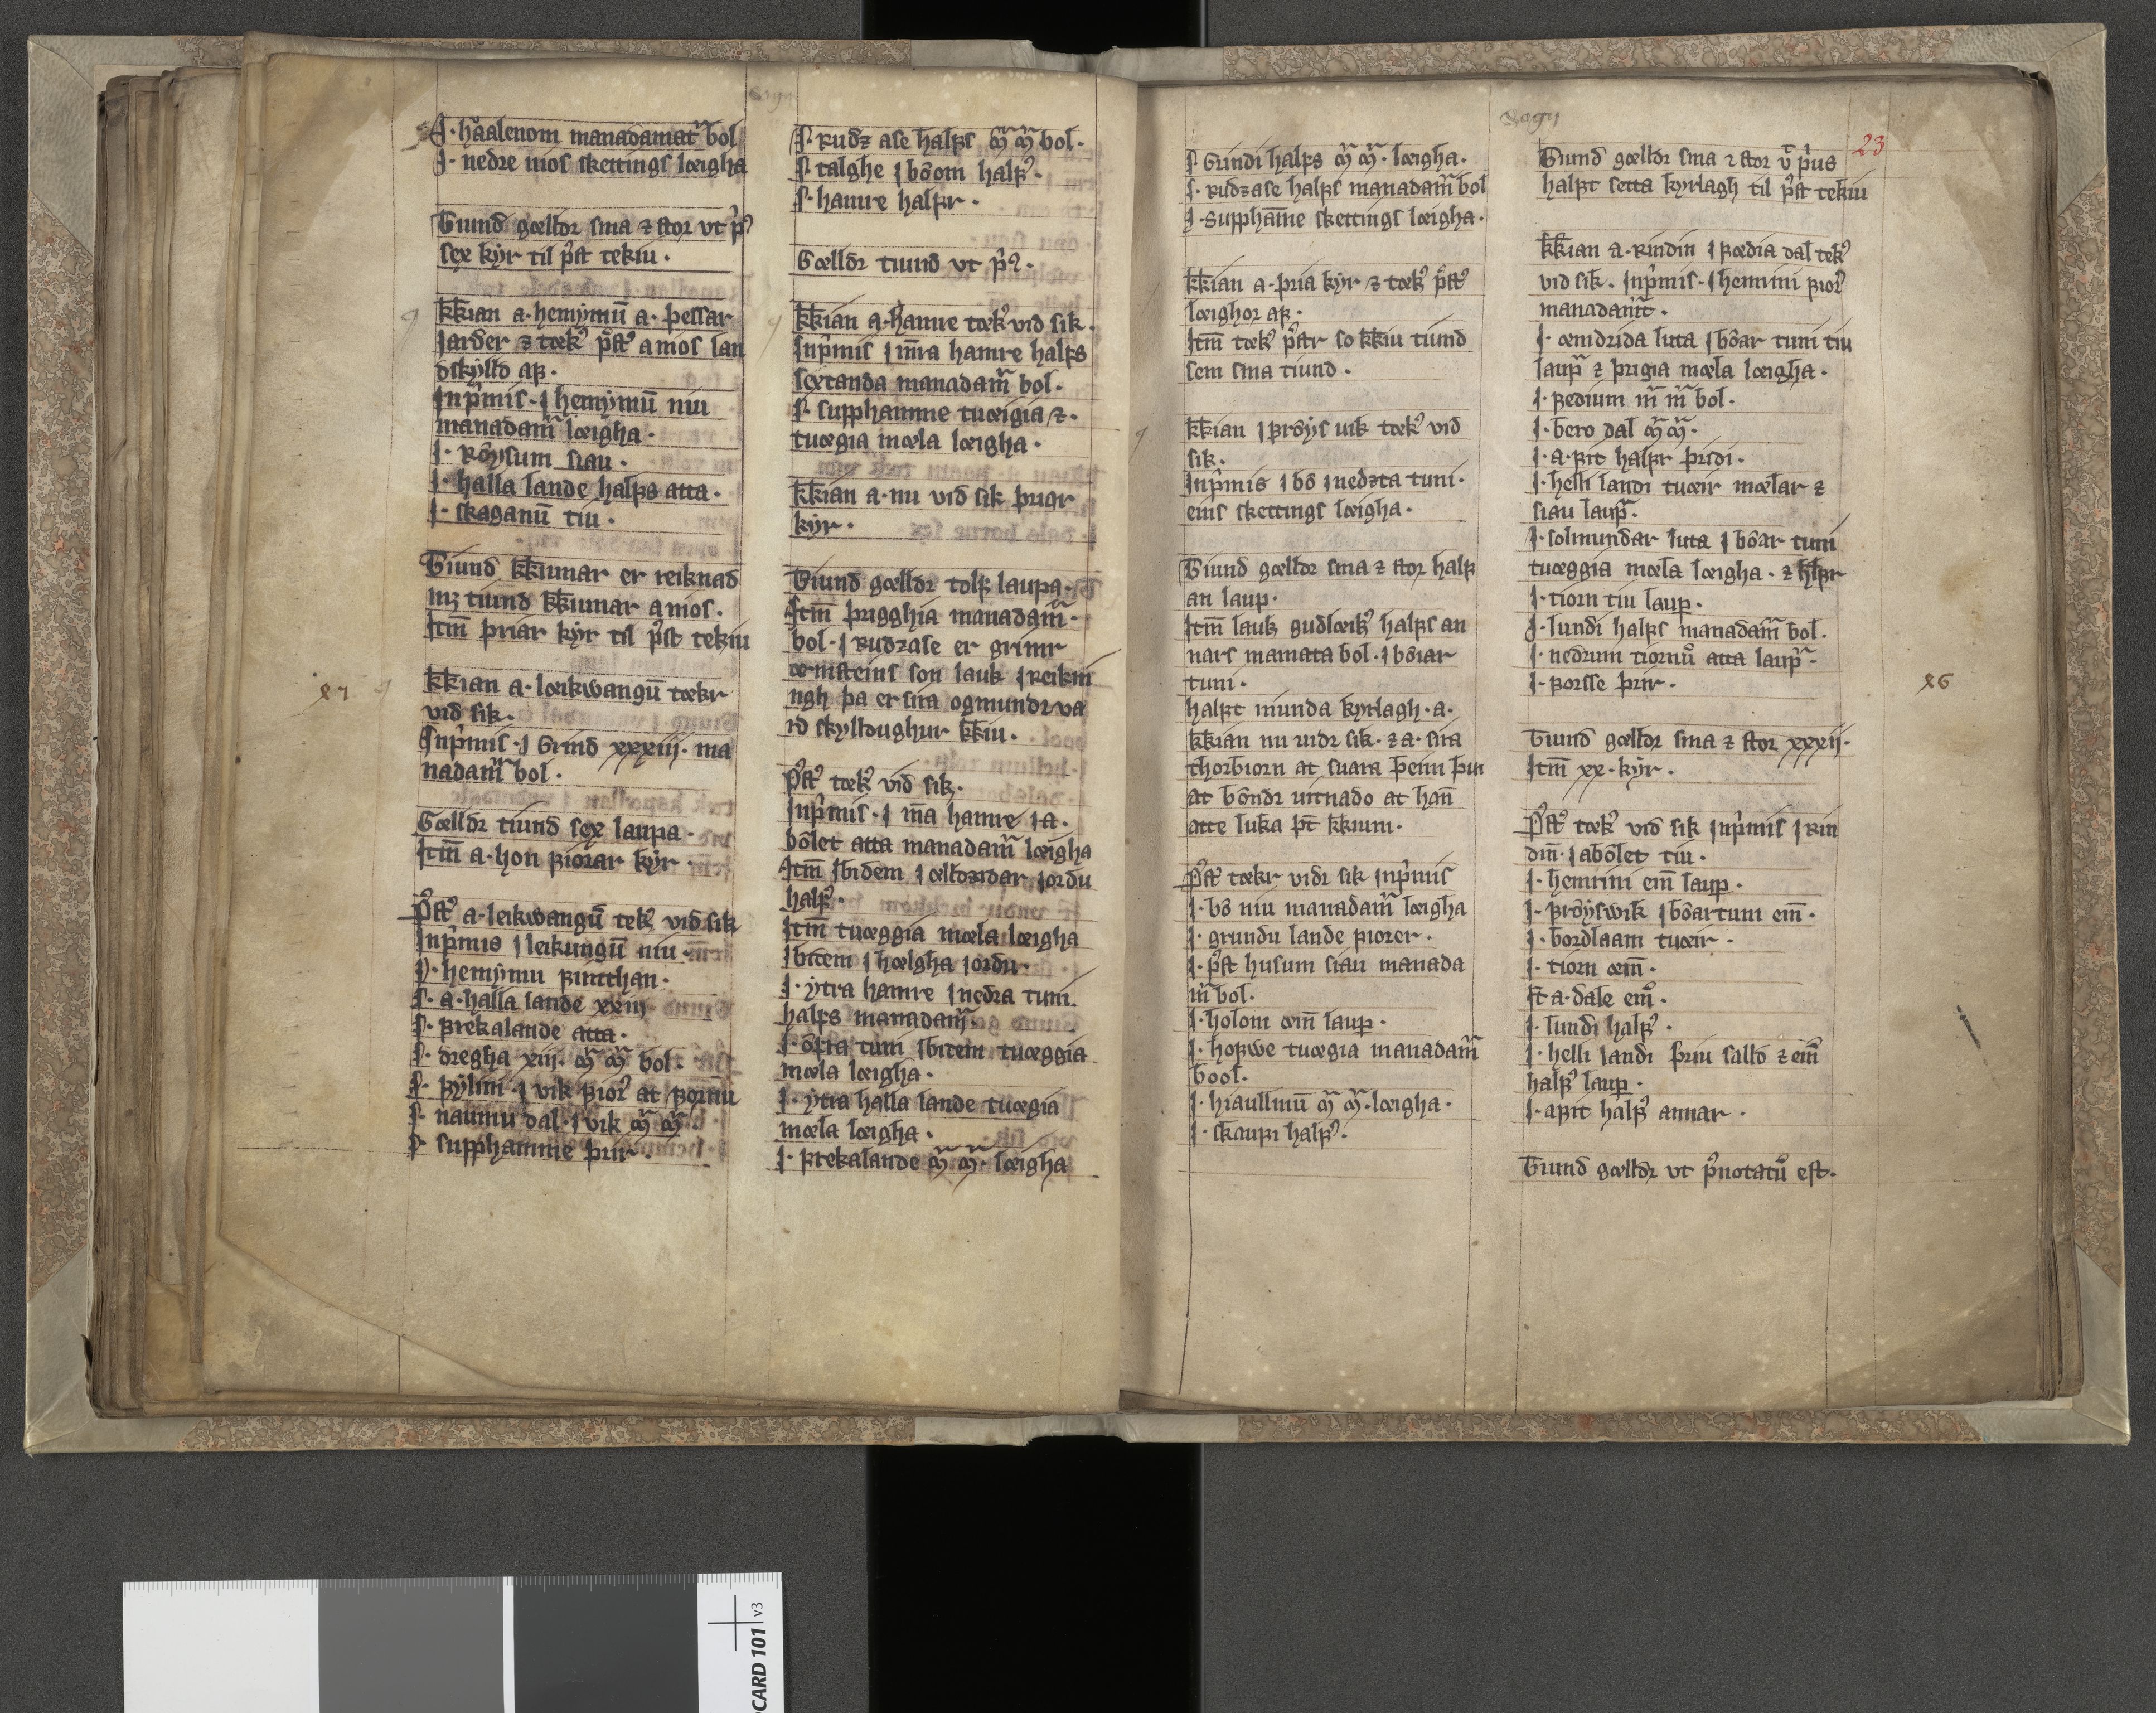 Sogn
J·haalenom manadamat bol
J· nedre mos skettings lœigha
Tiund gœlldr sma ⁊ stor vt p͛
sex kyr til p͛st tekiu·
kk̄ian a·hemymū a· þessar
Jarder ⁊ tœk͛ p͛st͛ a mos lan
dskylld aꝼ·
Jnp͛mis· J hemymū niu
manadam̃ lœigha·
J· Rôysum siau·
J· halla lande halꝼs atta·
J· skaganū tiu·
Tiund kk̄iunnar er reiknad
mꝫ tiund kk̄iunnar a mos·
Jtm̄ þriar kyr til p͛st tekiu
kk̄ian a·lœikwangū tœkr
vid sik·
Jnp͛mis· J Grind xxxiij· ma
nadam̃ bol·
Gœlldr tiund sex laupa·
Jtm̄ a·hon ꝼiorar kyr·
P͛st͛ a·leikwangū tek͛ vid sik
Jnp͛mis J leikungū niu·
J· hemymu ꝼimtthan·
J· a·halla lande xxiij
J· ꝼrekalande atta·
J· dregha xiij· m̃ m̃ bol·
J· ꝼylini· J vik ꝼior͛ at ꝼornu
J· naumu dal· J vik m̃ m̃·
J· supphamme þrir·
J· Rudꝫ ase halꝼs m̃ m̃ bol·
J· talghe J bôom halꝼ͛·
J· hamre halꝼr·
Gœlldr tiund vt p͛·
kk̄ian a·hamre tœk͛ vid sik·
Jnp͛mis J m̄ra hamre halꝼs
sextanda manadam̃ bol·
J· supphamme tuœigia ⁊·
tuœgia mœla lœigha·
kk̄ian a·nu vid sik þrigr
kyr·
Tiund gœlldr tolꝼ laupa·
Jtm̄ þrigghia manadam̃·
bol· J Rudꝫase er grimr
œrnsteins son lauk J reikni
ngh þa er sira ogmundr va
rd skylldughur kk̄iu·
P͛st͛ tœk͛ vid sik·
Jnp͛mis· J m̄a hamre J a·
bôlet atta manadam̃ lœigha
Jtm̄ Jbidem J œlldꝫidar Jordu
halꝼ͛·
Jtm̄ tuœggia mœla lœigha
Jbitem J hœlgha Jordu·
J· ytra hamre J nedra tuni
halꝼs manadam̃·
J· ôꝼra tuni Jbitem tuœggia
mœla lœigha·
J· ytra halla lande tuœgia
mœla lœigha·
J· ꝼrekalande m̃ m̃· lœigha
xv
Sogn
23
J· Grindi halꝼs m̃ m̃· lœigha·
J· Rudꝫase halꝼs manadam̃ bol
J· supphāme skettings lœigha·
kk̄ian a·þria kyr ⁊ tœk͛ p͛st͛
lœighor aꝼ·
Jtm̄ tœk͛ p͛str so kk̄iu tiund
sem sina tiund·
kk̄ian J ꝼrôys uik tœk͛ vid
sik·
Jnp͛mis J bô J nedꝫta tuni·
eins skettings lœigha·
Tiund gœlldr sma ⁊ stor halꝼ
an laup·
Jtm̄ lauk gudlœik͛ halꝼs an
nars mamata bol· J bôiar
tuni·
halꝼt niunda kyrlagh·a·
kk̄ian nu uidr sik· ⁊ a· sira
thorbiorn at suara þeim þui
at bôndr uitnado at han̄
atte luka þt kk̄iunni·
P͛st͛ tœkr vidr sik Jnp͛mis
J· bô niu manadam̃ lœigha
J· grundu lande ꝼiorer·
J· p͛st husum siau manada
m̃ bol·
J· holom œin̄ laup·
J· hoꝼwe tuœgia manadam̃
bool·
J· hiaullmū m̃ m̃·lœigha·
J· skauꝼi halꝼ͛·
Tiund gœlldr sma ⁊ stor vt p͛us
halꝼt setta kyrlagh til p͛st tekiu
kk̄ian a·Rindin J ꝼœdia dal tek͛
vid sik· Jnp͛mis· J hemrini ꝼior͛
manadam̃t·
J· œnidrida luta J bôar tuni tiu
laup͛ ⁊ þrigia mœla lœigha·
J· ꝼedium m̃ m̃ bol·
J· bero dal m̃ m̃·
J· a·ꝼit halꝼr þridi·
J· helli landi tuœir mœlar ⁊
siau laup͛·
J· solmundar luta J bôar tuni
tuœggia mœla lœigha· ⁊ hꝼr
J· tiorn tiu laup·
J· lundi halꝼs manadam̃ bol·
J· nedrum tiornū atta laup͛·
J· ꝼorsse þrir·
Tiund gœlldr sma ⁊ stor xxxij·
Jtm̄ xx·kyr·
P͛st͛ tœk͛ vid sik Jnp͛mis J rin
dm̄· J abôlet tiu·
J· hemrini ein̄ laup·
J· ꝼrôyswik J bôartuni ein̄·
J· bordlaam tuœir·
J· tiorn œin̄·
ꝼt a·dale ein͛·
J· lundi halꝼ͛·
J· helli landi þriu salld ⁊ ein͛
halꝼ͛ laup·
J· aꝼit halꝼ͛ annar·
Tiund gœlldr vt p͛notatū est·
x6